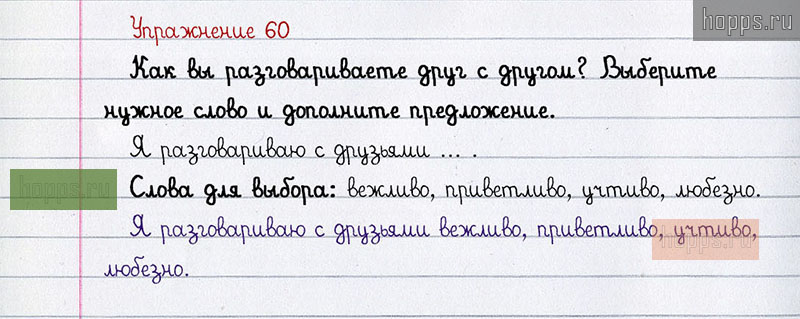 hopps.ru
Упражнение 60
Как вы разговариваете друг с другом? Выберите
нужное слово и дополните предложение.
Я разговариваю с друзьями ... .
hopps.ru
Слова для выбора: вежливо, приветливо, учтиво, любезно.
Я разговариваю с друзьями вежливо, приветливо, учтиво,
hopps.ru
любезно.